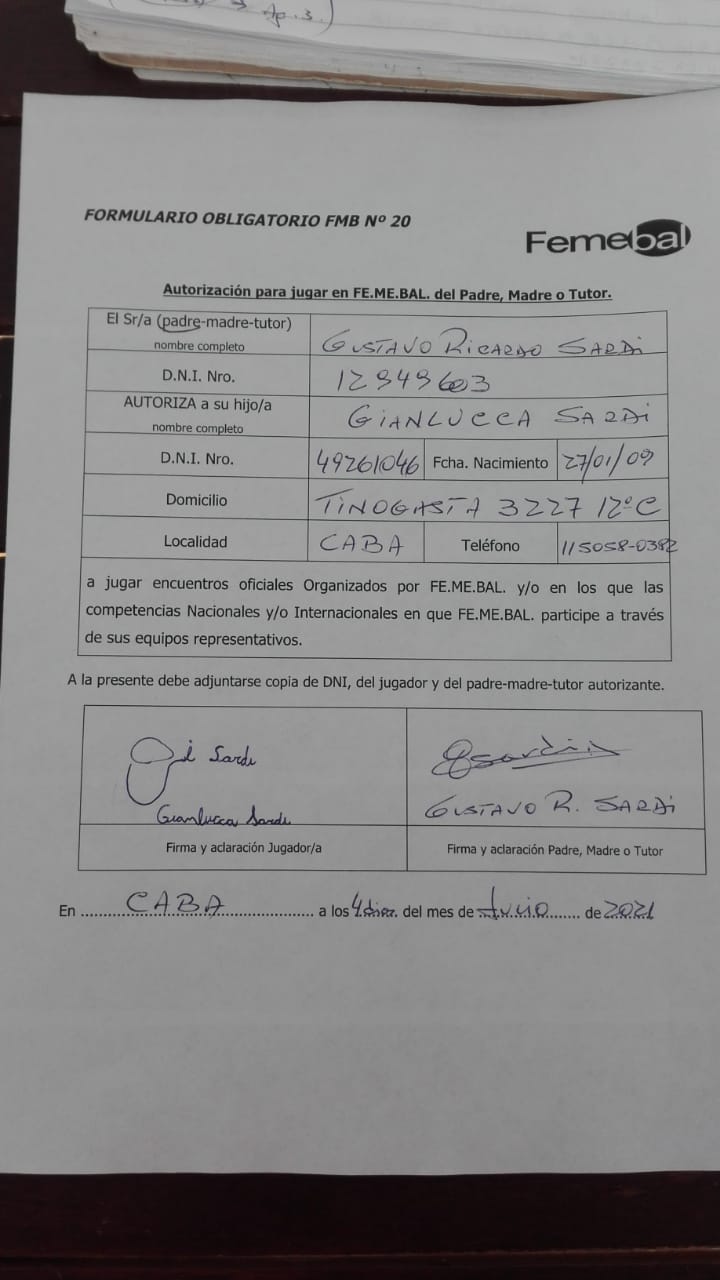 Ap. 3.
FORMULARIO OBLIGATORIO FMB Nº 20
Femebal
Autorización para jugar en FE.ME.BAL. del Padre, Madre o Tutor.
El Sr/a (padre-madre-tutor)
nombre completo
GUSTAVO RICARDO SARDI
D.N.I. Nro.
12949603
AUTORIZA a su hijo/a
nombre completo
GIANLUCCA SARDI
D.N.I. Nro.
49261046
Fcha. Nacimiento
27/01/09
Domicilio
TINOGASTA 3227 12ºC
Localidad
CABA
Teléfono
115058-0382
a jugar encuentros oficiales Organizados por FE.ME.BAL. y/o en los que las
competencias Nacionales y/o Internacionales en que FE.ME.BAL. participe a través
de sus equipos representativos.
A la presente debe adjuntarse copia de DNI, del jugador y del padre-madre-tutor autorizante.
Sardi
Gianlucca Sardi
GUSTAVO R. SARDI
Firma y aclaración Jugador/a
Firma y aclaración Padre, Madre o Tutor
En CABA a los 4 días del mes de Junio de 2021